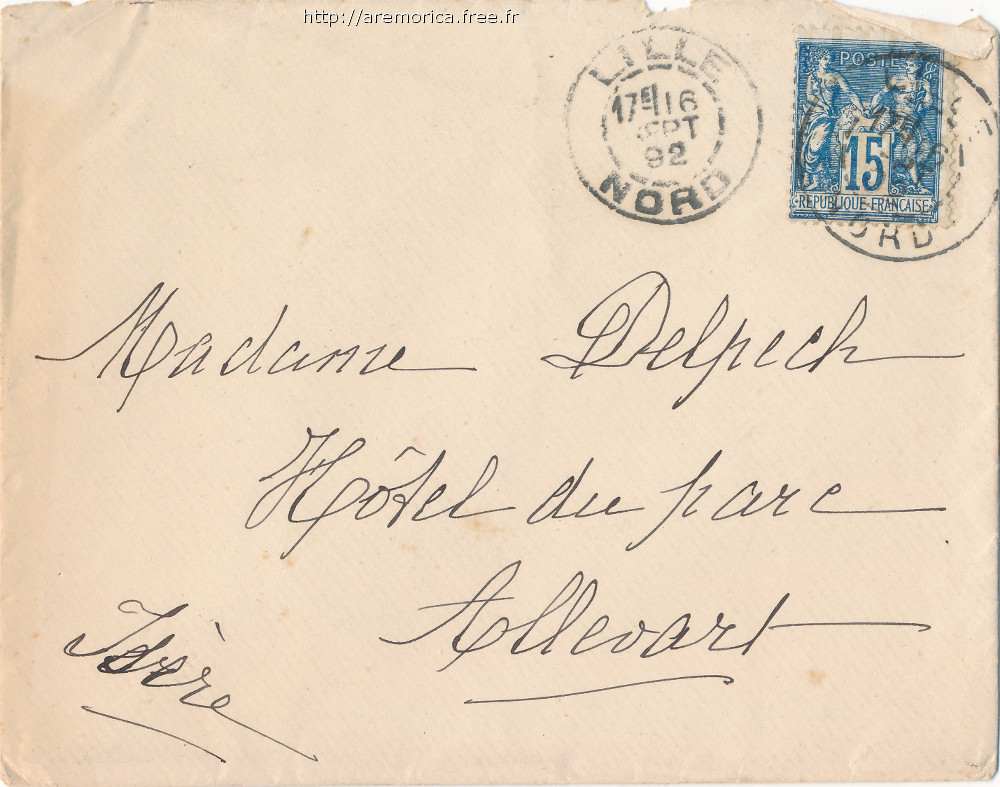 http://aremorica.free.fr
LILLE
17E 16
SEPT
92
NORD
POSTE
15
REPUBLIQUE FRANCAISE
ORD
Madame Delpech
Hôtel du parc
Allevart
Isère